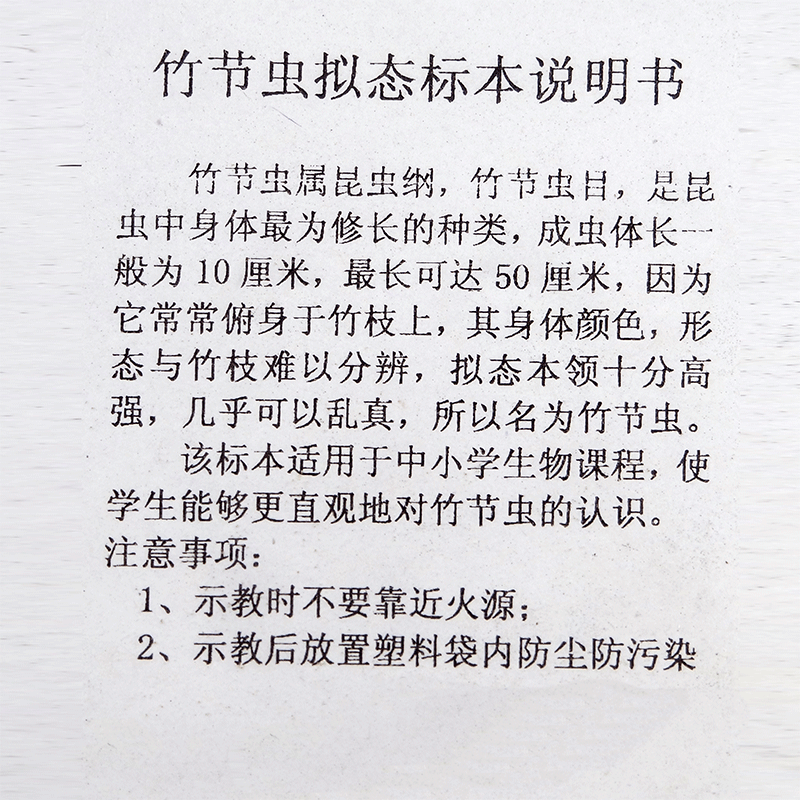 竹节虫拟态标本说明书
竹节虫属昆虫纲，竹节虫目，是昆
虫中身体最为修长的种类，成虫体长一
般为 10 厘米，最长可达 50 厘米，因为
它常常俯身于竹枝上，其身体颜色，形
态与竹枝难以分辨，拟态本领十分高
强，几乎可以乱真，所以名为竹节虫。
该标本适用于中小学生物课程，使
学生能够更直观地对竹节虫的认识。
注意事项：
1、示教时不要靠近火源；
2、示教后放置塑料袋内防尘防污染